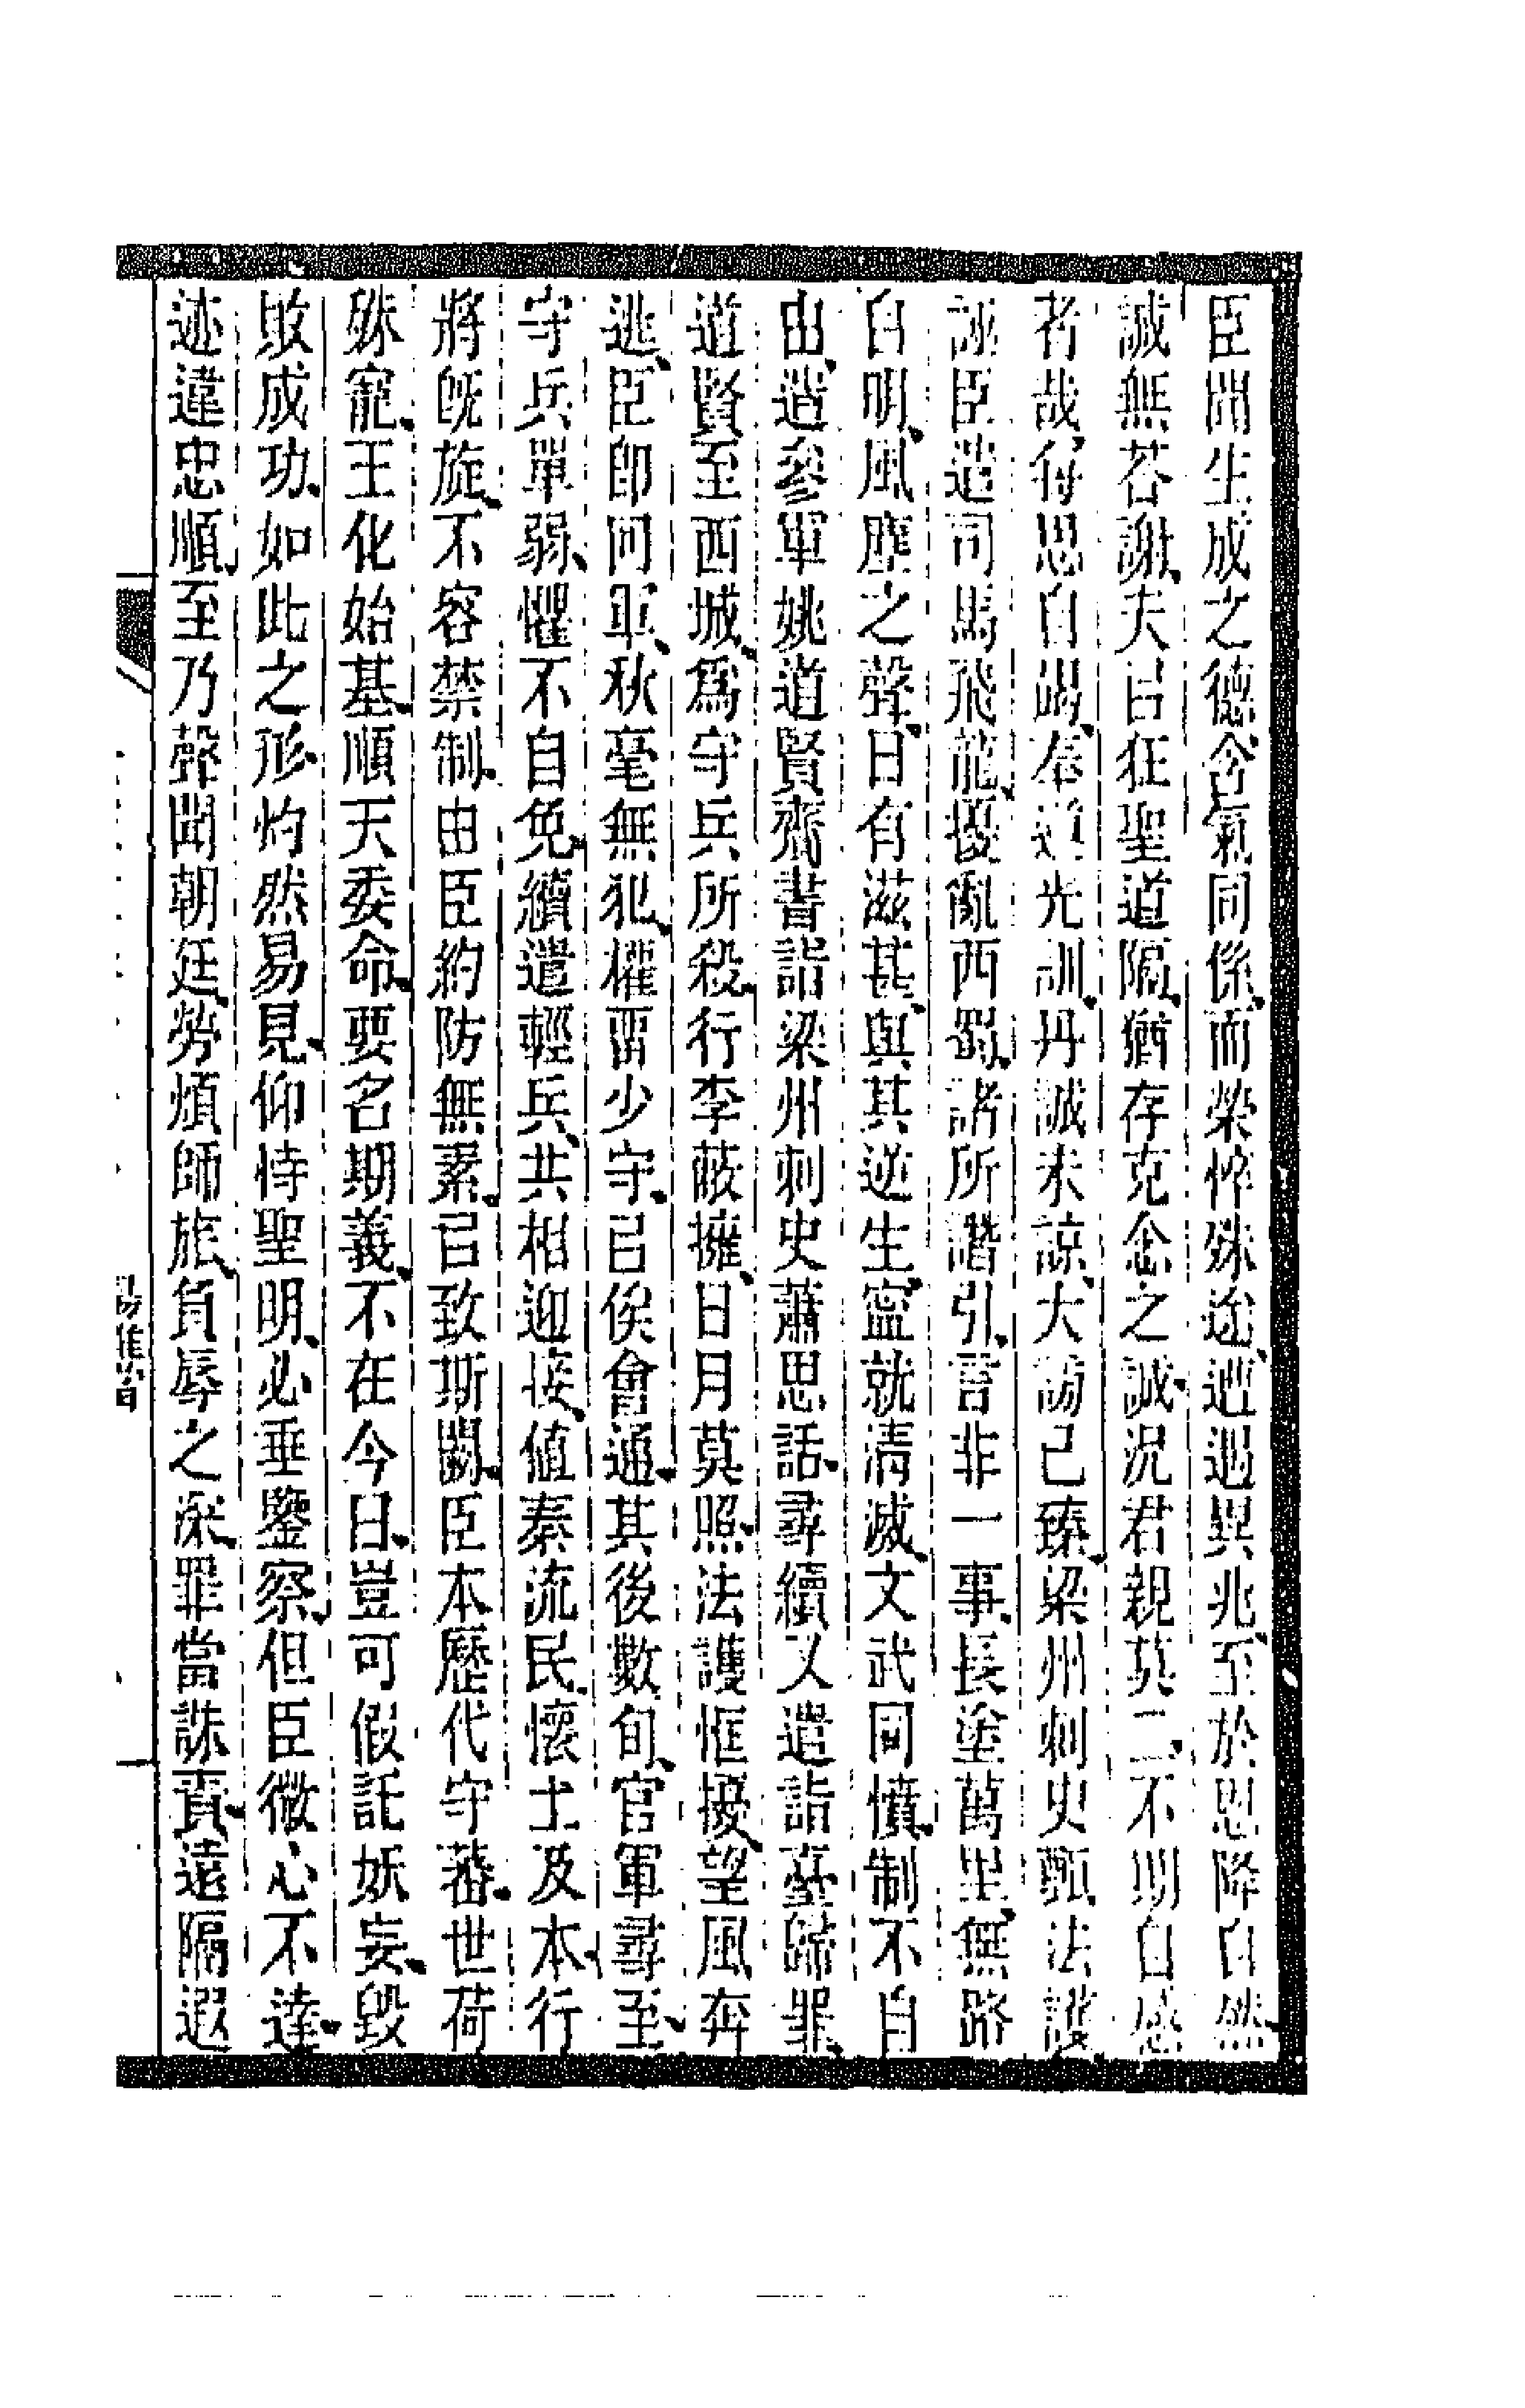 臣聞生成之德、含氣同係、而榮悴殊途、遭遇異兆、至於恩降自然、
誠無荅謝、夫㠯狂聖道隔、猶存克念之誠、況君親莫二、不期自感
者哉得思自竭、奉遵光訓、丹誠未諒、大謗已臻、梁州刺史甄法護、
誣臣遣司馬飛龍、擾亂西蜀、諸所譖引、言非一事、長塗萬里、無路
自明、風塵之聲、日有滋甚、與其逆生、寧就清滅、文武同憤、制不自
由、遣參軍姚道賢齎書詣梁州刺史蕭思話、尋續又遣詣臺歸罪、
道賢至西城、爲守兵所殺、行李蔽擁、日月莫照、法護恇擾、望風奔
逃、臣卽回軍、秋毫無犯、權畱少守、㠯俟會通、其後數旬、官軍尋至、
守兵單弱、懼不自免、續遣輕兵、共相迎接、值秦流民、懷土及本、行
將旣旋、不容禁制、由臣約防無素、㠯致斯闕、臣本歷代守蕃、世荷
殊寵、王化始基、順天委命、要名期義、不在今日、豈可假託妖妄、毀
敗成功、如此之形、灼然易見、仰恃聖明、必垂鑒察、但臣微心不達、
迹違忠順、至乃聲聞朝廷、勞煩師旅、負辱之深、罪當誅責、遠隔遐